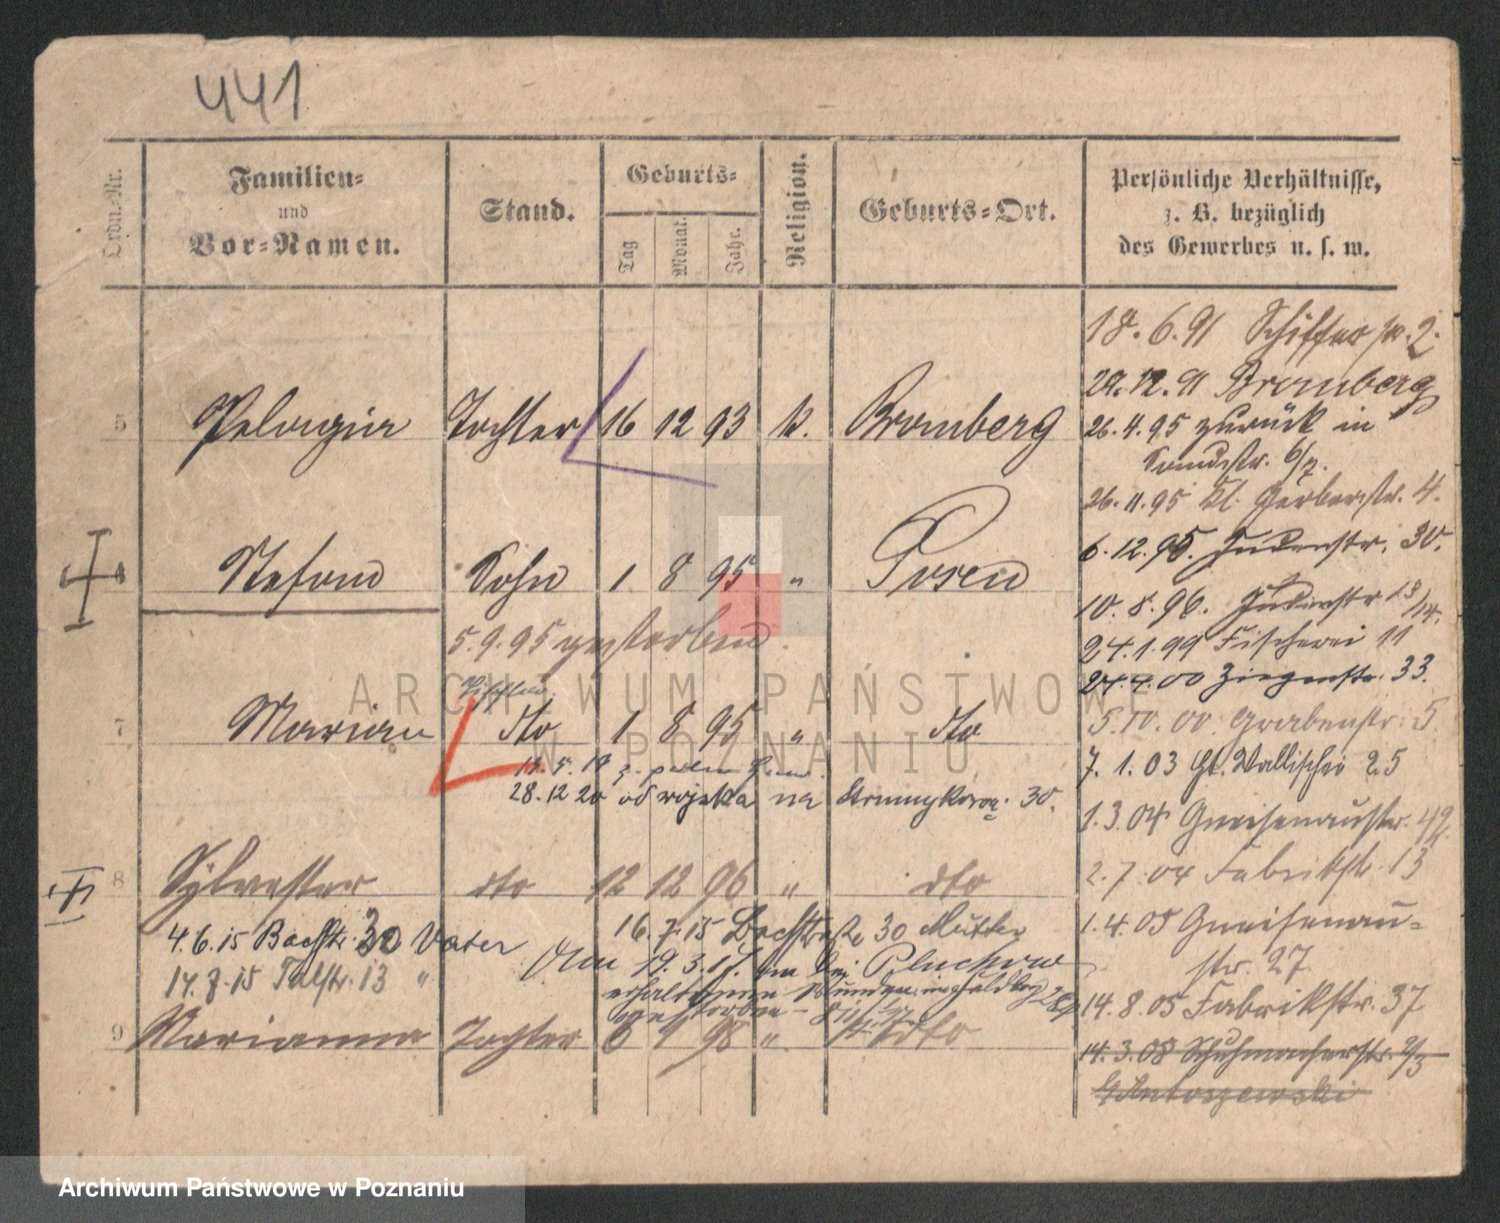 441
Ordn.-Nr.
Familien-
und
Vor-Namen.
Stand.
Geburts-
Tag
Monat.
Jahr.
Religion.
Geburts-Ort.
Persönliche Verhältnisse,
z. B. bezüglich
des Gewerbes u. s. w.
5 Pelagia Tochter 16 12 93 k. Bromberg
Stefan Sohn 1 8 95 " Posen
5.9.95 gestorben.
7 Marian dto 1 8 95 " dto
28.12.20 od wojska na 30.
8 Sylvester dto 12 12 96 " dto
4.6.15 Bachstr. 30 Vater
17.8.15 Talstr. 13 "
16.7.15 Bachstraße 30 Mutter
Am 19.3.17. bei
erhaltenen Wunden im Feldlaz
gestorben
9 Marianna Tochter 6 1 98 " dto
18.6.91 Schifferstr. 2.
29.12.91 Bromberg
26.4.95 zurück in
Sandstr. 6/7.
26.11.95 Kl. Gerberstr. 4.
6.12.95. Judenstr. 30.
10.8.96. Judenstr 13/14.
24.1.99 Fischerei 11
24.4.00 Ziegenstr. 33.
5.10.00. Grabenstr. 5
7.1.03 Gr. Wallischei 25
1.3.04 Gneisenaustr.
2.7.04 Fabrikstr. 13
1.4.05 Gneisenau-
str. 27
14.8.05 Fabrikstr. 37
14.3.08 Schuhmacherstr.
Antoszewski
ARCHIWUM PAŃSTWOWE
W POZNANIU
Archiwum Państwowe w Poznaniu